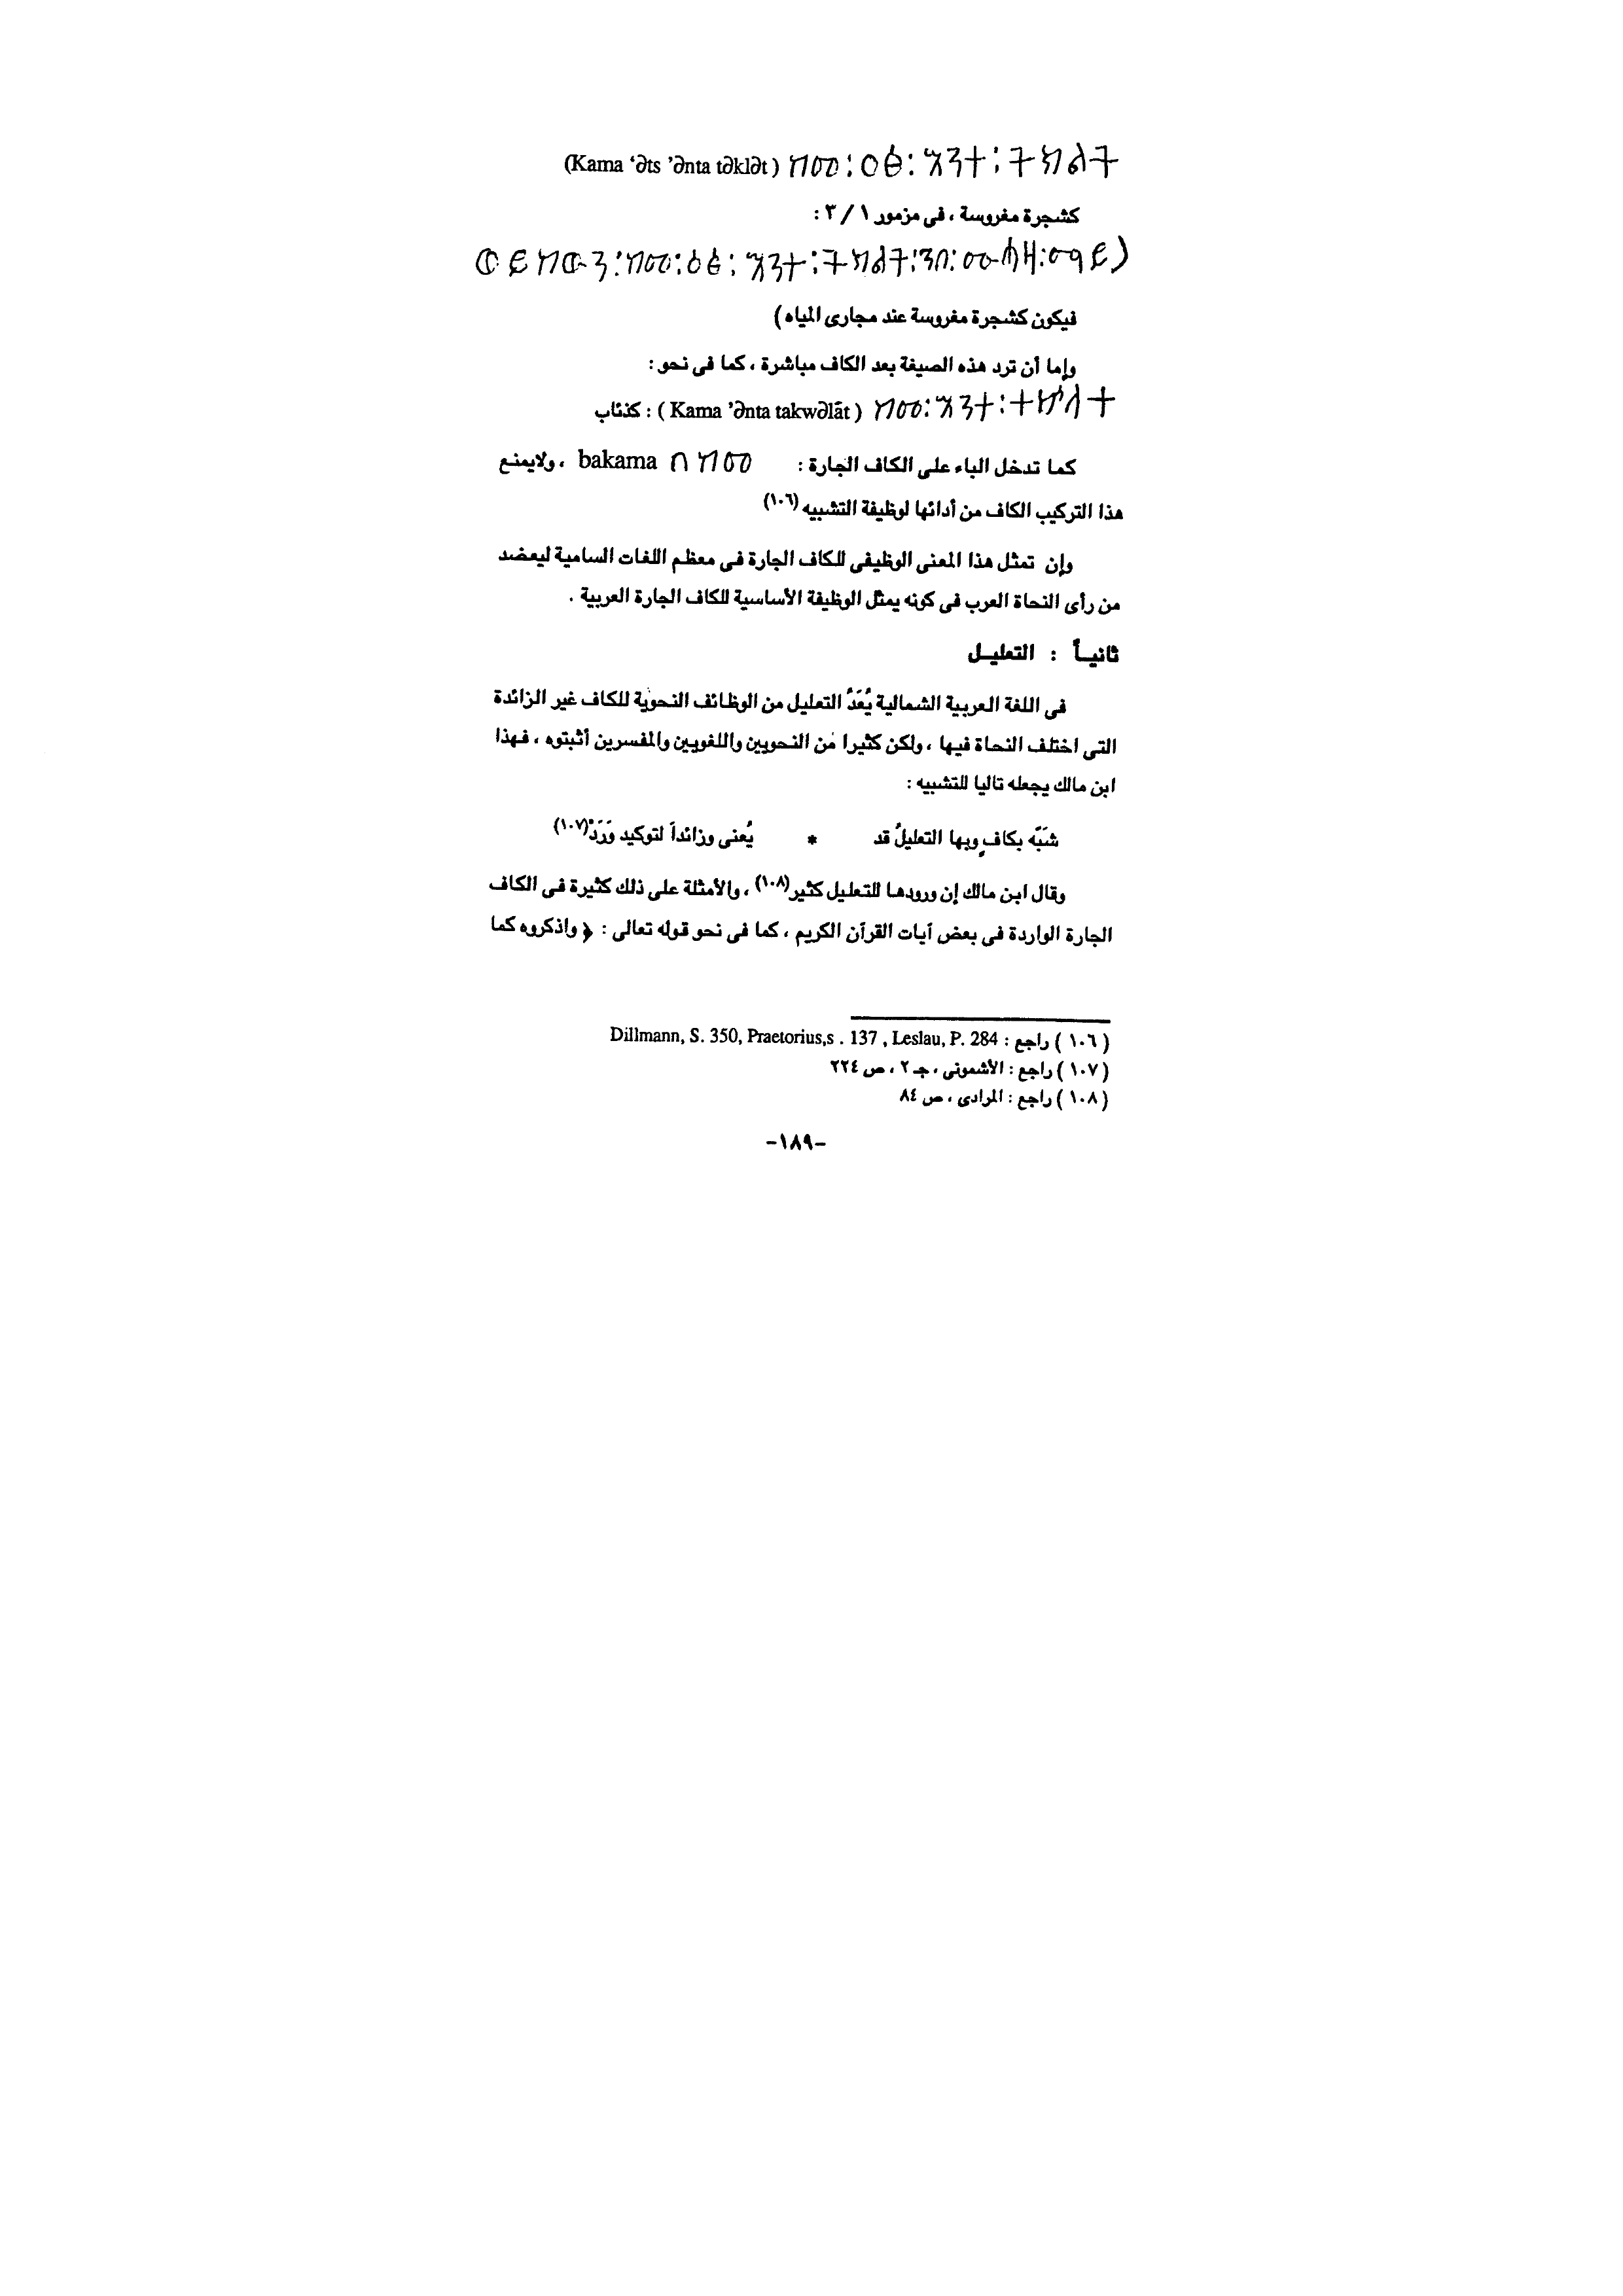 (Kama ‘∂ts ’∂nta t∂kl∂t) ከመ፡ዕፅ፡እንተ፡ትክልት
كشجرة مغروسة ، فى مزمور ١ / ٣ :
ወይከውን፡ከመ፡ዕፅ፡እንተ፡ትክልት፡ኀበ፡ሙሐዘ፡ማይ)
فيكون كشجرة مغروسة عند مجارى المياه )
وإما أن ترد هذه الصيغة بعد الكاف مباشرة ، كما فى نحو :
ከመ፡እንተ፡ተኵላት ( Kama ’∂nta takw∂lāt ) : كذئاب
كما تدخل الباء على الكاف الجارة : በከመ bakama ، ولايمنع
هذا التركيب الكاف من أدائها لوظيفة التشبيه (١٠٦)
وإن تمثل هذا المعنى الوظيفى للكاف الجارة فى معظم اللغات السامية ليعضد
من رأى النحاة العرب فى كونه يمثل الوظيفة الأساسية للكاف الجارة العربية .
ثانيـاً : التعليـل
فى اللغة العربية الشمالية يُعَدُّ التعليل من الوظائف النحوية للكاف غير الزائدة
التى اختلف النحاة فيها ، ولكن كثيرا من النحويين واللغويين والمفسرين أثبتوه ، فهذا
ابن مالك يجعله تاليا للتشبيه :
شَبّه بكافٍ وبها التعليلُ قد * يُعنى وزائداً لتوكيد وَرَدْ(١٠٧)
وقال ابن مالك إن ورودها للتعليل كثير(١٠٨) ، والأمثلة على ذلك كثيرة فى الكاف
الجارة الواردة فى بعض آيات القرآن الكريم ، كما فى نحو قوله تعالى : ﴿ واذكروه كما
( ١٠٦ ) راجع : Dillmann, S. 350, Praetorius,s . 137 , Leslau, P. 284
( ١٠٧ ) راجع : الأشمونى ، جـ ٢ ، ص ٢٢٤
( ١٠٨ ) راجع : المرادى ، ص ٨٤
-١٨٩-